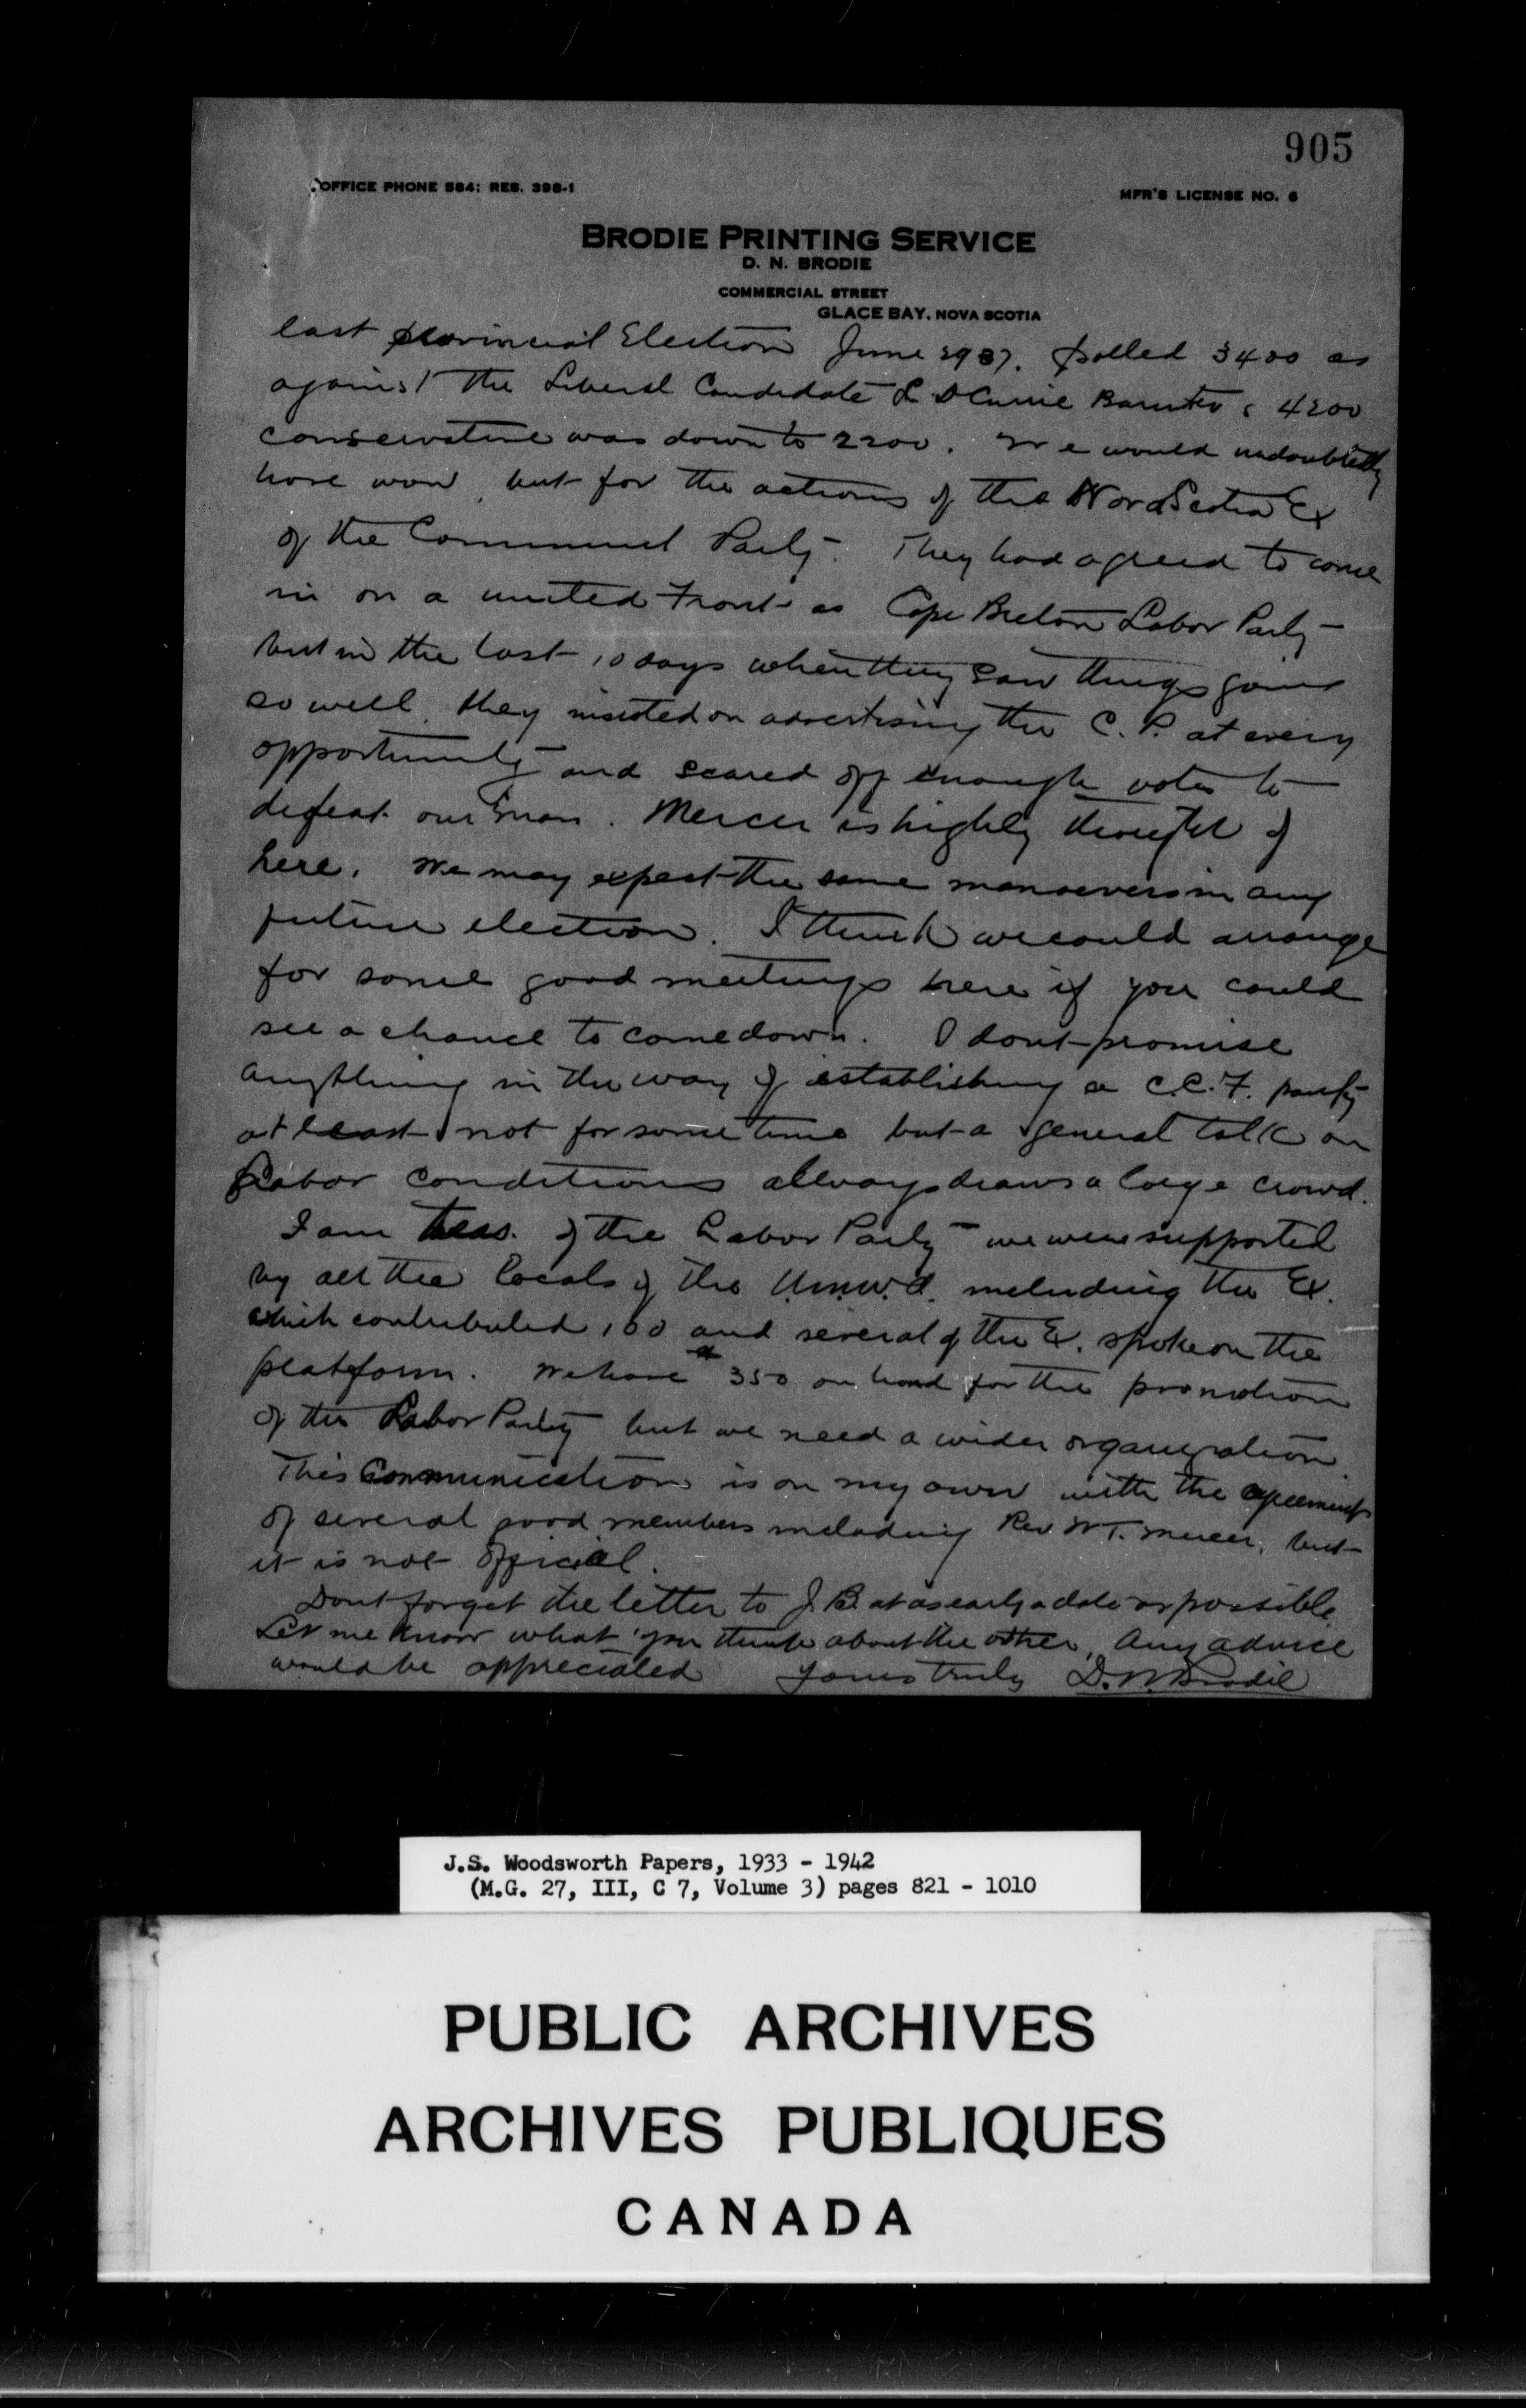 905
OFFICE PHONE 584; RES. 398-1
MFR'S LICENSE NO. 6
BRODIE PRINTING SERVICE
D. N. BRODIE
COMMERCIAL STREET
GLACE BAY, NOVA SCOTIA
last provincial Election June 1937. polled 3400 as
against the Liberal Candidate L D Currie 4200
conservative was down to 2200. We would undoubtedly
have won, but for the actions of the Nova Scotia Ex
of the Communist Party. They had agreed to come
in on a united Front as Cape Breton Labor Party
but in the last 10 days when they saw things going
so well, they insisted on advertising the C. P. at every
opportunity and scared off enough votes to
defeat our man. Mercer is highly thought of
here. We may expect the same manoevers in any
future election. I think we could arrange
for some good meetings here if you could
see a chance to come down. I dont promise
anything in the way of establishing a C.C.F. party
at least not for some time but a general talk on
Labor conditions allways draws a large crowd.
I am Treas. of the Labor Party we were supported
by all the locals of the U.M.W.A. including the Ex.
which contributed 100 and several of the Ex. spoke on the
platform. We have $350 on hand for the promotion
of the Labor Party but we need a wider organization.
This Communication is on my own with the agreement
of several good members including Rev W T. Mercer, but
it is not official.
Dont forget the letter to J.B. at as early a date as possible
Let me know what you think about the other, Any advice
would be appreciated Yours truly D. N. Brodie
J.S. Woodsworth Papers, 1933 - 1942
(M.G. 27, III, C 7, Volume 3) pages 821 - 1010
PUBLIC ARCHIVES
ARCHIVES PUBLIQUES
CANADA